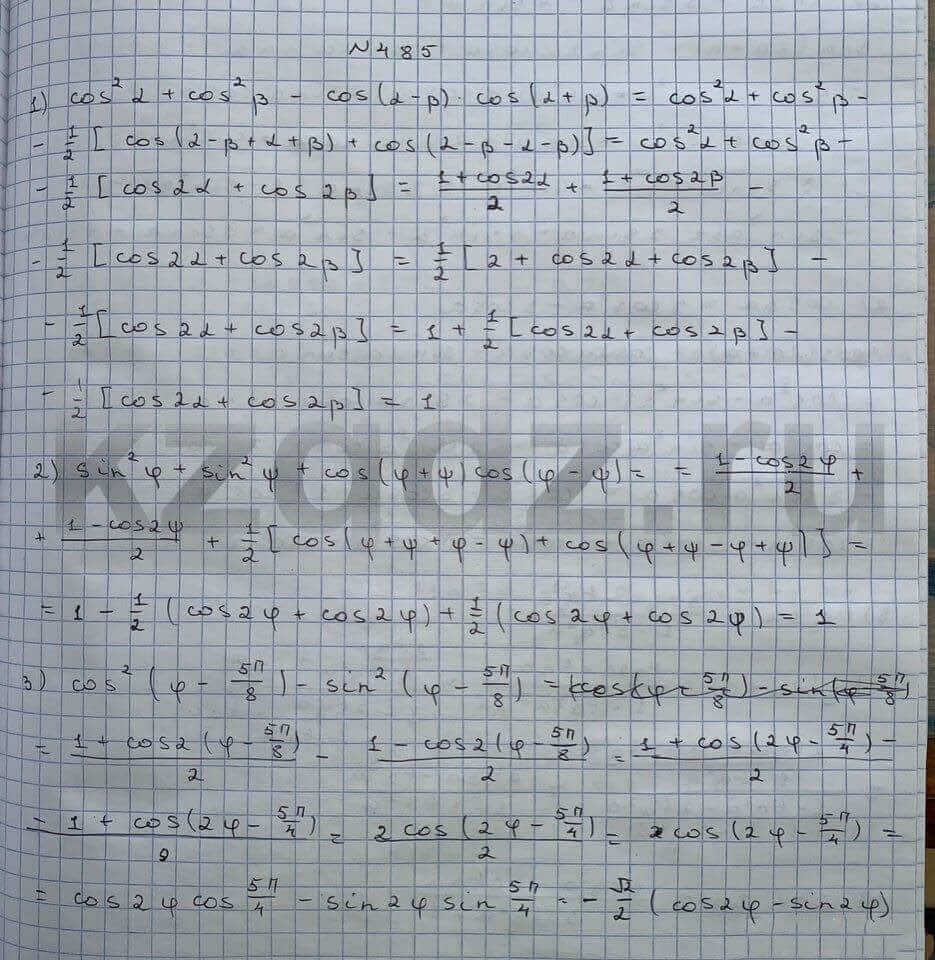 N485
1) cos²α + cos²β - cos(α-β)·cos(α+β) = cos²α + cos²β -
- 1/2 [cos(α-β+α+β) + cos(α-β-α-β)] = cos²α + cos²β -
- 1/2 [cos2α + cos2β] = (1+cos2α)/2 + (1+cos2β)/2 -
- 1/2 [cos2α + cos2β] = 1/2 [2 + cos2α + cos2β] -
- 1/2 [cos2α + cos2β] = 1 + 1/2 [cos2α + cos2β] -
- 1/2 [cos2α + cos2β] = 1
kzgdz.ru
2) sin²φ + sin²ψ + cos(φ+ψ)cos(φ-ψ) = = (1-cos2φ)/2 +
+ (1-cos2ψ)/2 + 1/2 [cos(φ+ψ+φ-ψ) + cos(φ+ψ-φ+ψ)] =
= 1 - 1/2 (cos2φ + cos2φ) + 1/2 (cos2φ + cos2φ) = 1
3) cos²(φ - 5π/8) - sin²(φ - 5π/8) = (cos(φ - 5π/8) - sin(φ - 5π/8)
= (1+cos2(φ-5π/8))/2 - (1-cos2(φ-5π/8))/2 = (1+cos(2φ-5π/4)-
-1+cos(2φ-5π/4))/2 = 2cos(2φ-5π/4)/2 = 2cos(2φ-5π/4) =
= cos2φ cos 5π/4 - sin2φ sin 5π/4 = - √2/2 (cos2φ - sin2φ)